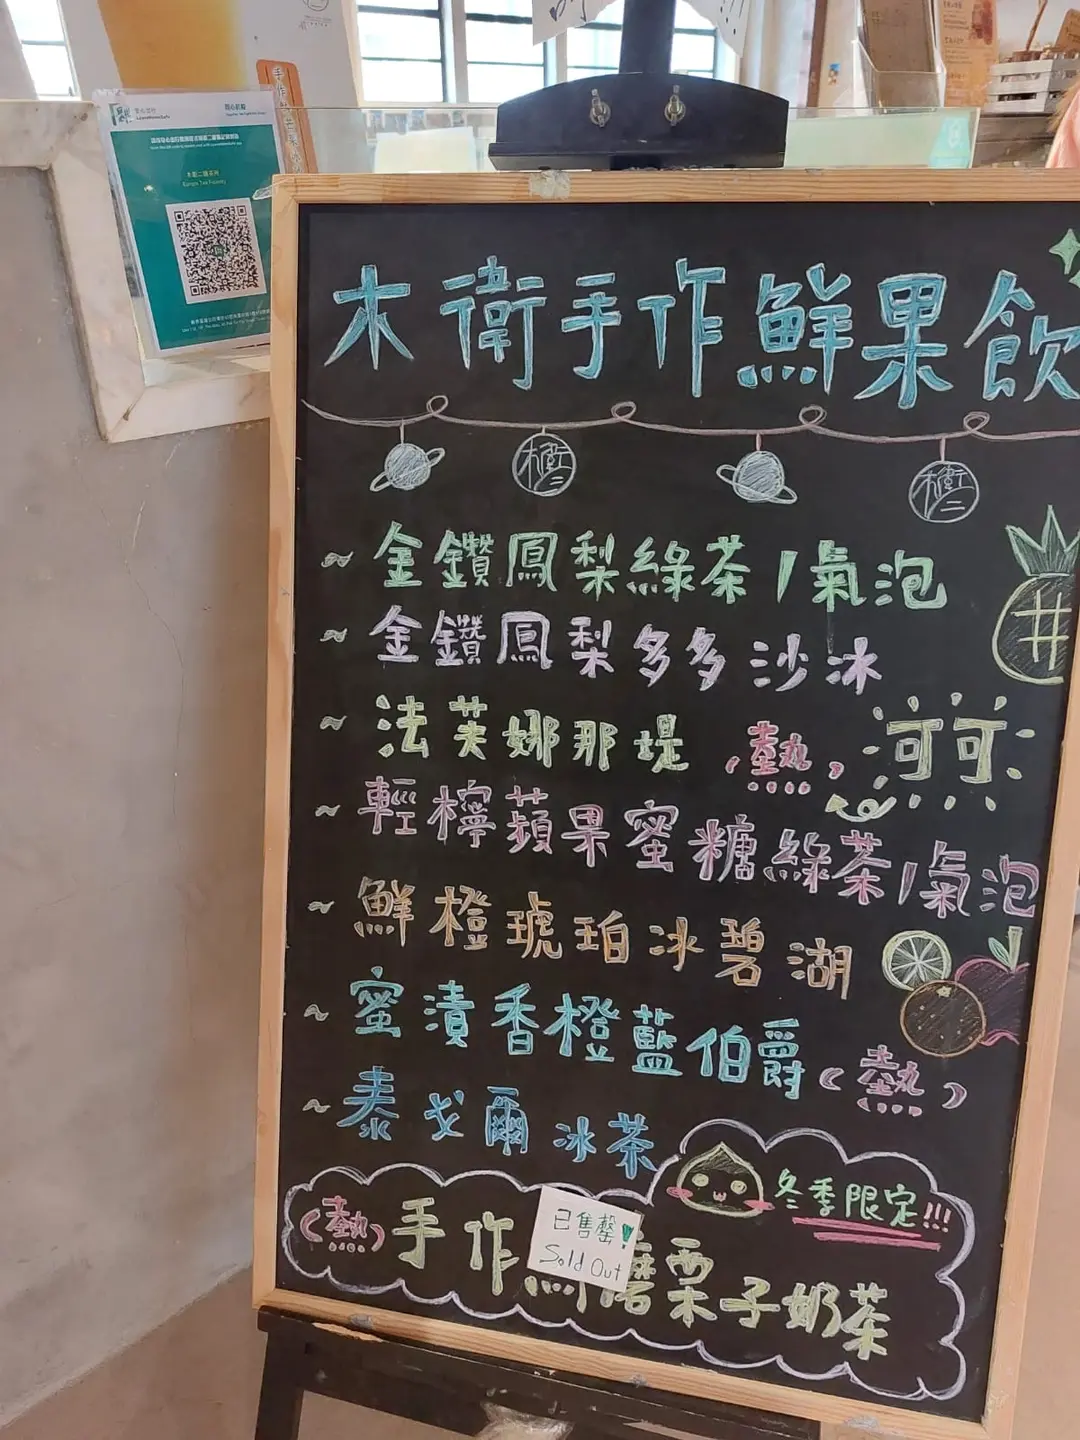 安心出行
LeaveHomeSafe
木衛二
手作
木衛手作鮮果飲
木衛二
木衛二
~ 金鑽鳳梨綠茶/氣泡
~ 金鑽鳳梨多多沙冰
~ 法芙娜那堤 (熱) 可可
~ 輕檸蘋果蜜糖綠茶/氣泡
~ 鮮橙琥珀冰碧湖
~ 蜜漬香橙藍伯爵(熱)
~ 泰戈爾冰茶
冬季限定!!!
(熱)手作 磨栗子奶茶
已售罄!
Sold Out